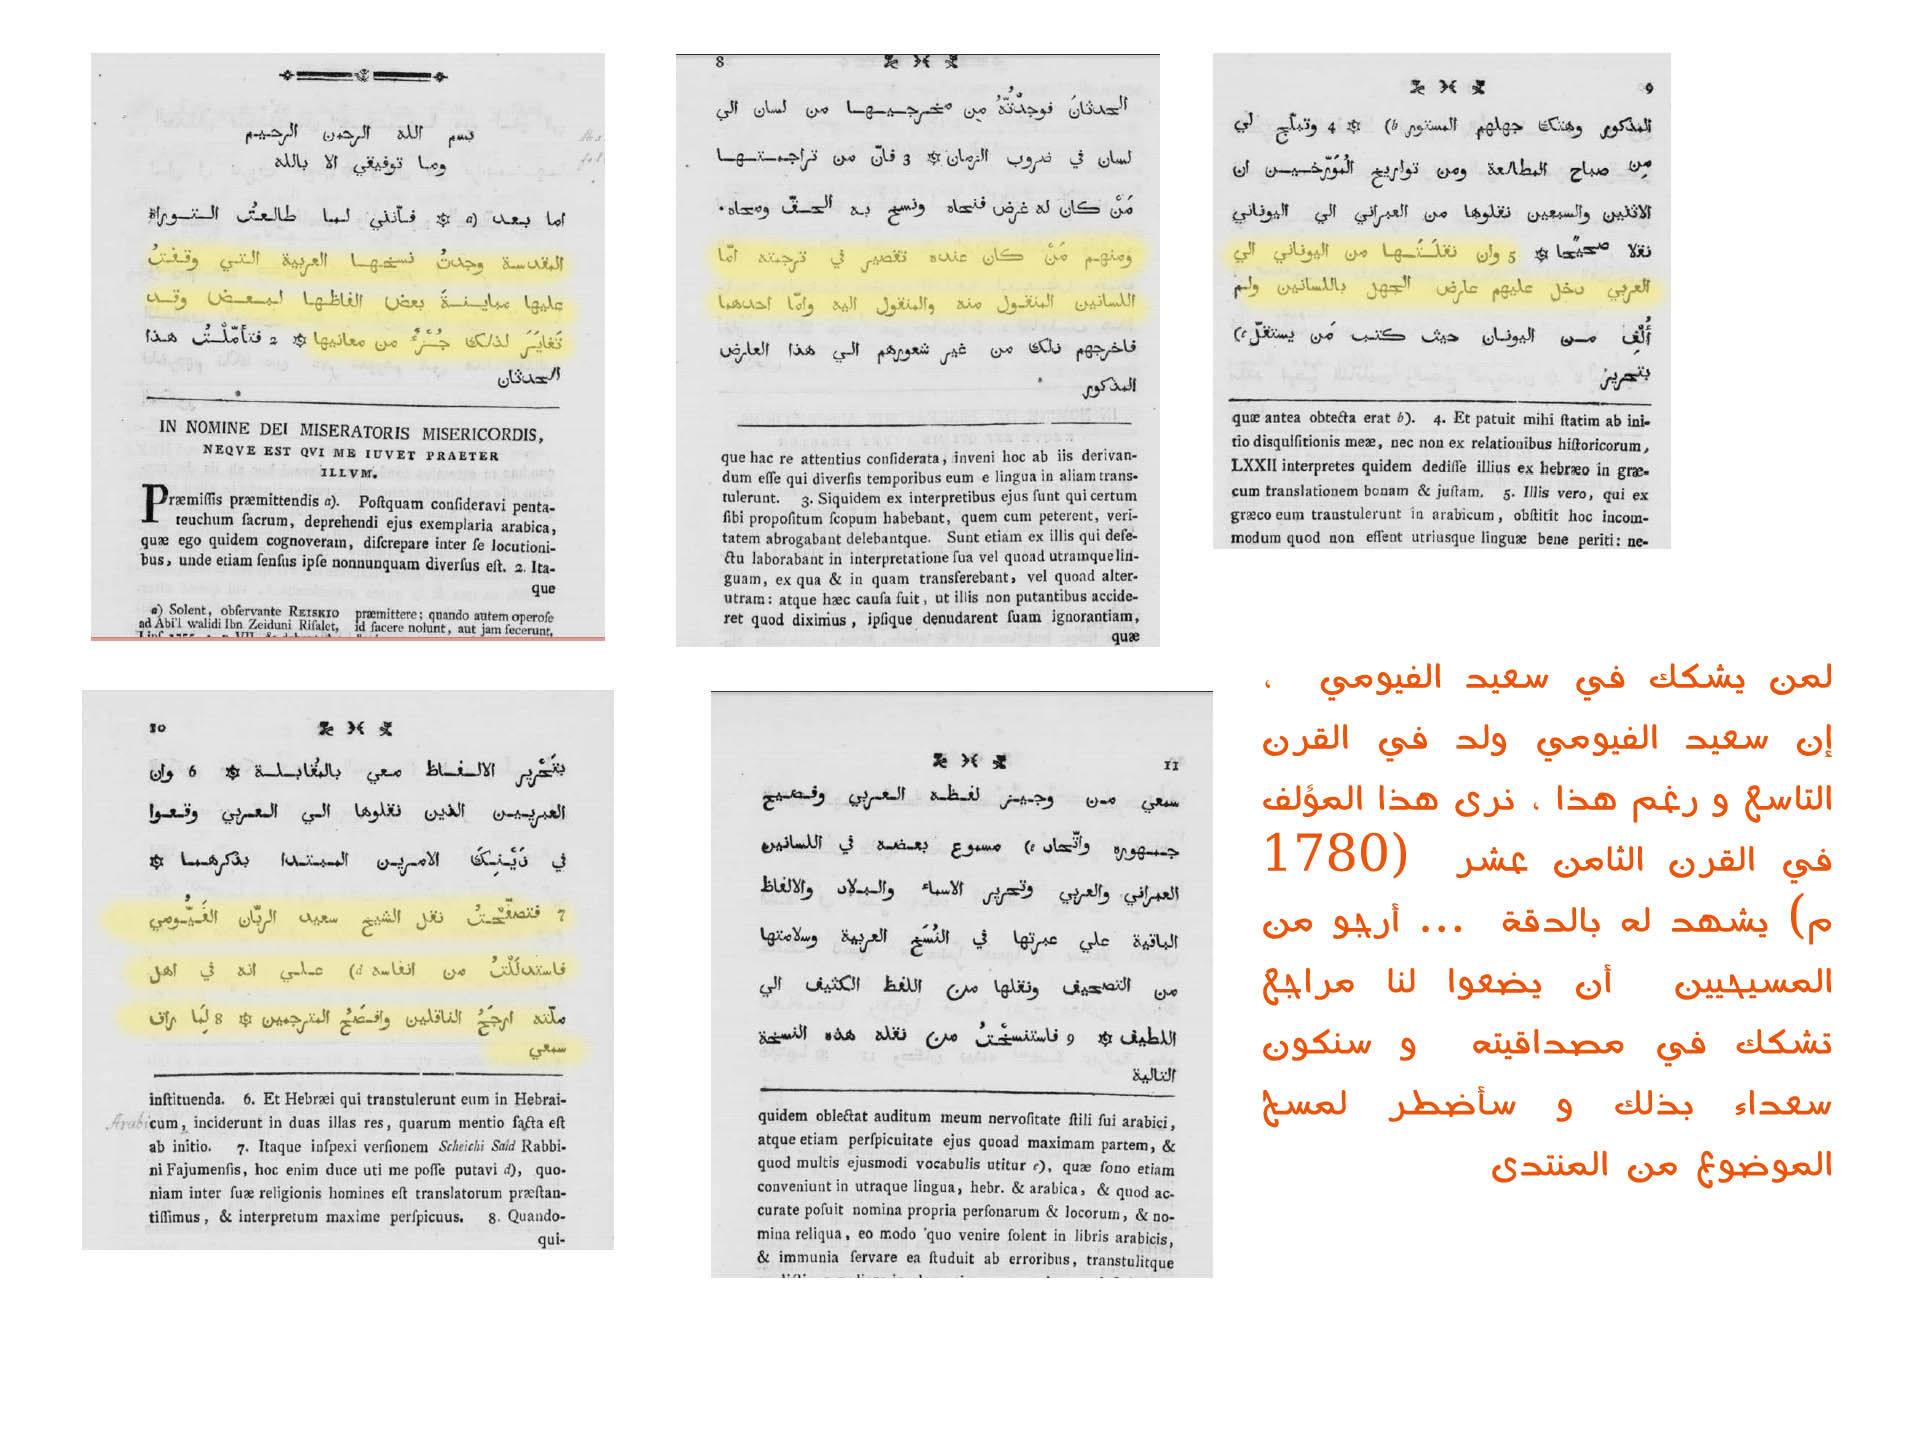 بسم الله الرحمن الرحيم
وما توفيقي الا بالله
اما بعد (a ۞ فأنني لما طالعتُ التوراة
المقدسة وجدتُ نسخها العربية التي وقفتُ
عليها مباينةً بعض الفاظها لبعض وقد
تَغايَرَ لذلك جُزْءٌ من معانيها ۞ 2 فتأمّلتُ هذا
الحدثان
IN NOMINE DEI MISERATORIS MISERICORDIS,
NEQVE EST QVI ME IUVET PRAETER
ILLVM.
Præmiſſis præmittendis a). Poſtquam conſideravi penta-
teuchum ſacrum, deprehendi ejus exemplaria arabica,
quæ ego quidem cognoveram, diſcrepare inter ſe locutioni-
bus, unde etiam ſenſus ipſe nonnunquam diverſus eſt. 2. Ita-
que
a) Solent, obſervante REISKIO
ad Abi'l walidi Ibn Zeiduni Riſalet,
præmittere; quando autem operoſe
id facere nolunt, aut jam fecerunt,
8
الحدثانَ فوجدْتُهُ مِن مخرجيها من لسان الي
لسان في ضروب الزمان ۞ 3 فانّ من تراجمتها
مَنْ كان له غرض فنحاه ونسخ به الحقّ ومحاه.
ومنهم مَنْ كان عنده تقصير في ترجمته امّا
اللسانين المنقول منه والمنقول اليه وامّا احدهما
فاخرجهم ذلك من غير شعورهم الي هذا العارض
المذكور
que hac re attentius conſiderata, inveni hoc ab iis derivan-
dum eſſe qui diverſis temporibus eum e lingua in aliam trans-
tulerunt. 3. Siquidem ex interpretibus ejus ſunt qui certum
ſibi propoſitum ſcopum habebant, quem cum peterent, veri-
tatem abrogabant delebantque. Sunt etiam ex illis qui defe-
ctu laborabant in interpretatione ſua vel quoad utramque lin-
guam, ex qua & in quam transferebant, vel quoad alter-
utram: atque hæc cauſa fuit, ut illis non putantibus accide-
ret quod diximus, ipſique denudarent ſuam ignorantiam,
quæ
9
المذكور وهتك جهلهم المستور (b ۞ 4 وتبلّج لي
مِن صباح المطالعة ومن تواريخ المُوَرّخين ان
الاثنين والسبعين نقلوها من العبراني الي اليوناني
نقلا صحيحًا ۞ 5 وان نقلَتَها من اليوناني الي
العربي دخل عليهم عارض الجهل باللسانين ولم
أُلْفِ من اليونان حيث كتب مَن يستقلّ (c
بتحرير
quæ antea obtecta erat b). 4. Et patuit mihi ſtatim ab ini-
tio disquiſitionis meæ, nec non ex relationibus hiſtoricorum,
LXXII interpretes quidem dediſſe illius ex hebræo in græ-
cum translationem bonam & juſtam. 5. Illis vero, qui ex
græco eum transtulerunt in arabicum, obſtitit hoc incom-
modum quod non eſſent utriusque linguæ bene periti: ne-
10
بتَحْرير الالفاظ معي بالمُقابلة ۞ 6 وان
العبريين الذين نقلوها الي العربي وقعوا
في ذَيْنِكَ الامرين المبتدا بذكرهما ۞
7 فتصفّحْتُ نقل الشيخ سعيد الربّان الفَيُّومي
فاستدلَلْتُ من انفاسه (d علي انه في اهل
ملّته ارجَحُ الناقلين وافصَحُ المترجمين ۞ 8 لِمَا راق
سمعي
inſtituenda. 6. Et Hebræi qui transtulerunt eum in Hebrai-
Arabi cum, inciderunt in duas illas res, quarum mentio facta eſt
ab initio. 7. Itaque inſpexi verſionem Scheichi Said Rabbi-
ni Fajumenſis, hoc enim duce uti me poſſe putavi d), quo-
niam inter ſuæ religionis homines eſt translatorum præſtan-
tiſſimus, & interpretum maxime perſpicuus. 8. Quando-
qui-
11
سمعي من وجيز لفظه العربي وفصيح
جمهوره واتّحاد (e مسموع بعضه في اللسانين
العبراني والعربي وتحرير الاسماء والبلاد والالفاظ
الباقية علي عبرتها في النُسَخ العربية وسلامتها
من التصحيف ونقلها من اللفظ الكثيف الي
اللطيف ۞ 9 فاستنسخْتُ من نقله هذه النسخة
التالية
quidem oblectat auditum meum nervoſitate ſtili ſui arabici,
atque etiam perſpicuitate ejus quoad maximam partem, &
quod multis ejusmodi vocabulis utitur e), quæ ſono etiam
conveniunt in utraque lingua, hebr. & arabica, & quod ac-
curate poſuit nomina propria perſonarum & locorum, & no-
mina reliqua, eo modo quo venire ſolent in libris arabicis,
& immunia ſervare ea ſtuduit ab erroribus, transtulitque
لمن يشكك في سعيد الفيومي ،
إن سعيد الفيومي ولد في القرن
التاسع و رغم هذا ، نرى هذا المؤلف
في القرن الثامن عشر (1780
م) يشهد له بالدقة ... أرجو من
المسيحيين أن يضعوا لنا مراجع
تشكك في مصداقيته و سنكون
سعداء بذلك و سأضطر لمسح
الموضوع من المنتدى